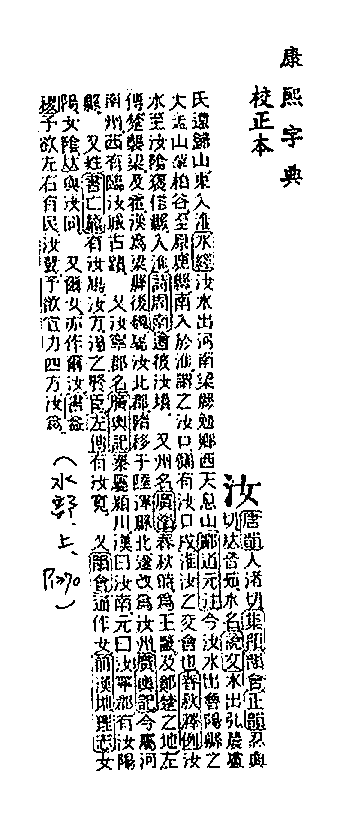 康熙字典
校正本
汝
唐韻人渚切集韻韻會正韻忍與
切𠀤音茹水名說文水出弘農盧
氏還歸山東入淮水經汝水出河南梁縣勉鄉西天息山酈道元注今汝水出魯陽縣之
大盂山蒙柏谷至原鹿縣南入於淮謂之汝口側有汝口戍淮汝之交會也春秋釋例汝
水至汝陰褒信縣入淮詩周南遵彼汝墳 又州名廣韻春秋時爲王畿及鄭楚之地左
傳楚襲梁及霍漢爲梁縣後魏屬汝北郡隋移于陸渾縣北遂改爲汝州廣輿記今屬河
南州西有臨汝城古蹟 又汝寧郡名廣輿記秦屬潁川漢曰汝南元曰汝寧郡有汝陽
縣 又姓書亡篇有汝鳩汝方湯之賢臣左傳有汝寬 又韻會通作女前漢地理志女
陽女陰𠀤與汝同 又爾女亦作爾汝書益
稷予欲左右有民汝翼予欲宣力四方汝爲
（水部上、P1070）